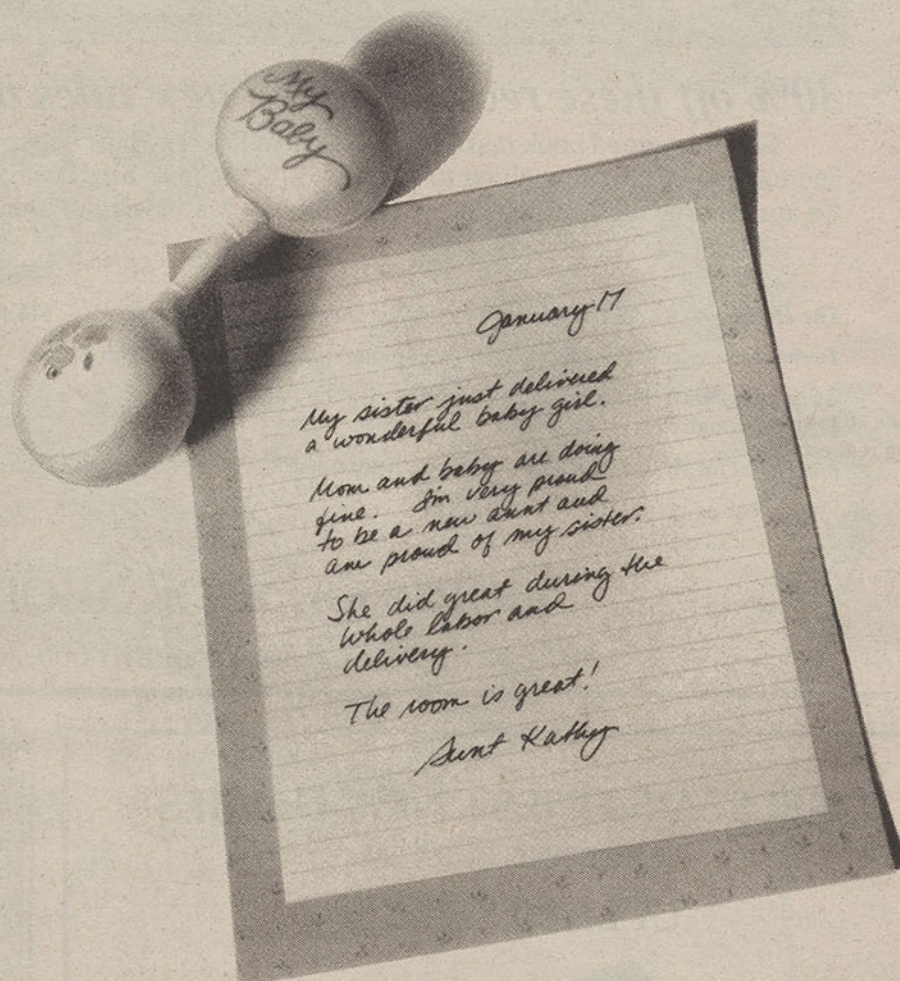 My
Baby
January 17
My sister just delivered
a wonderful baby girl.
Mom and baby are doing
fine. I'm very proud
to be a new aunt and
am proud of my sister.
She did great during the
whole labor and
delivery.
The room is great!
Aunt Kathy